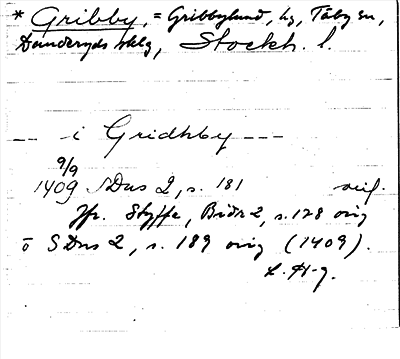 * Gribby, = Gribbylund, hg, Täby sn,
Danderyds sklg, Stockh. l.
-- i Gridhby ---
9/9
1409 SDns 2, s. 181 avsl.
Jfr. Styffe, Bidr 2, s. 128 orig
o SDns 2, s. 189 orig (1409).
L. H-g.